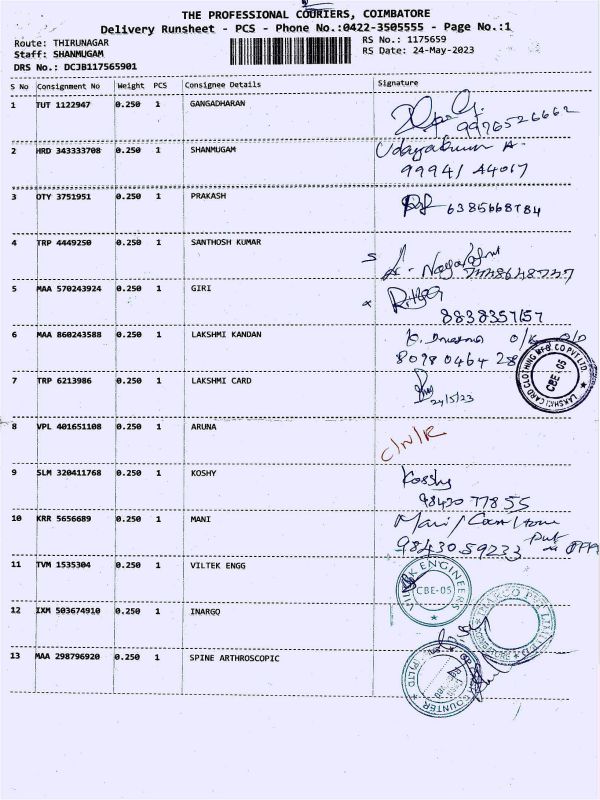 THE PROFESSIONAL COURIERS, COIMBATORE
Delivery Runsheet - PCS - Phone No.:0422-3505555 - Page No.:1
Route: THIRUNAGAR
Staff: SHANMUGAM
DRS No.: DCJB117565901
RS No.: 1175659
RS Date: 24-May-2023
S No Consignment No Weight PCS Consignee Details Signature
1 TUT 1122947 0.250 1 GANGADHARAN
9976526662
2 HRD 343333708 0.250 1 SHANMUGAM
99941 44017
3 OTY 3751951 0.250 1 PRAKASH
4 TRP 4449250 0.250 1 SANTHOSH KUMAR
5 MAA 570243924 0.250 1 GIRI
8838357157
6 MAA 860243588 0.250 1 LAKSHMI KANDAN
80980464 28
LAKSHMI CARD CLOTHING MFG. CO PVT LTD
CBE-05
7 TRP 6213986 0.250 1 LAKSHMI CARD
24/5/23
8 VPL 401651108 0.250 1 ARUNA C/N/R
9 SLM 320411768 0.250 1 KOSHY Koshy
98430 77855
10 KRR 5656689 0.250 1 MANI Mani
98430 59233
11 TVM 1535304 0.250 1 VILTEK ENGG
VILTEK ENGINEERS
CBE-05
12 IXM 503674910 0.250 1 INARGO
13 MAA 298796920 0.250 1 SPINE ARTHROSCOPIC